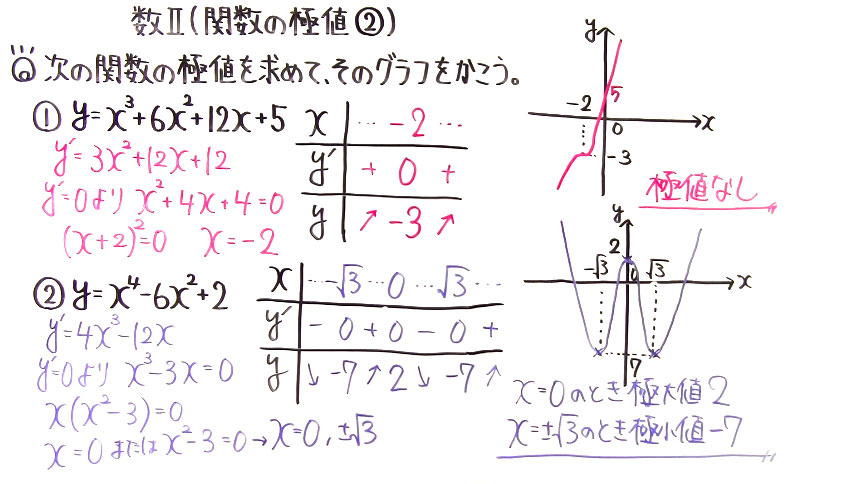 数Ⅱ(関数の極値②)
次の関数の極値を求めて、そのグラフをかこう。
① y=x³+6x²+12x+5
y´=3x²+12x+12
y´=0より x²+4x+4=0
(x+2)²=0 x=-2
x … -2 …
y´ + 0 +
y ↗ -3 ↗
y
5
-2
0
x
-3
極値なし
② y=x⁴-6x²+2
y´=4x³-12x
y´=0より x³-3x=0
x(x²-3)=0
x=0 または x²-3=0→x=0, ±√3
x … -√3 … 0 … √3 …
y´ - 0 + 0 - 0 +
y ↘ -7 ↗ 2 ↘ -7 ↗
y
2
-√3 0 √3 x
7
x=0のとき極大値2
x=±√3のとき極小値-7